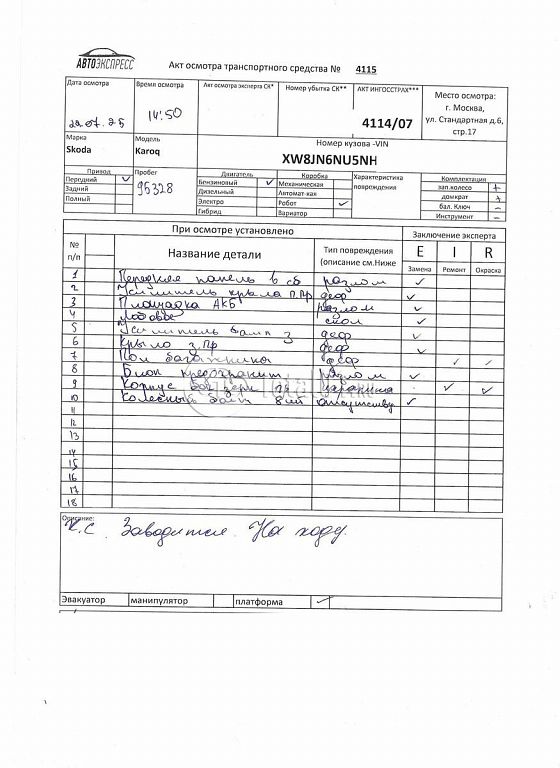 АВТОЭКСПРЕСС
Акт осмотра транспортного средства № 4115
Дата осмотра
29.07.25
Время осмотра
14:50
Акт осмотра эксперта СК*
Номер убытка СК**
АКТ ИНГОССТРАХ***
4114/07
Место осмотра:
г. Москва,
ул. Стандартная д.6,
стр.17
Марка
Skoda
Модель
Karoq
Номер кузова -VIN
XW8JN6NU5NH
Привод
Передний ✓
Задний
Полный
Пробег
95328
Двигатель
Бензиновый ✓
Дизельный
Электро
Гибрид
Коробка
Механическая
Автомат-кая
Робот ✓
Вариатор
Характеристика
повреждения
Комплектация
зап.колесо +
домкрат +
бал. Ключ –
Инструмент –
При осмотре установлено
Заключение эксперта
№
п/п
Название детали
Тип повреждения
(описание см.Ниже
E I R
Замена Ремонт Окраска
1 Передняя панель в сб разлом ✓
2 Усилитель крыла п.пр деф ✓
3 Площадка АКБ разлом ✓
4 Лобовое скол ✓
5 Усилитель бамп з деф ✓
6 Крыло з.пр деф ✓
7 Пол багажника деф ✓ ✓
8 Блок предохранит разлом ✓
9 Корпус зерк царапина ✓ ✓
10 Колесный болт 8шт отсутству ✓
11
12
13
14
15
16
17
18
Описание:
К.С. Заводится. На ходу.
Эвакуатор манипулятор платформа ✓